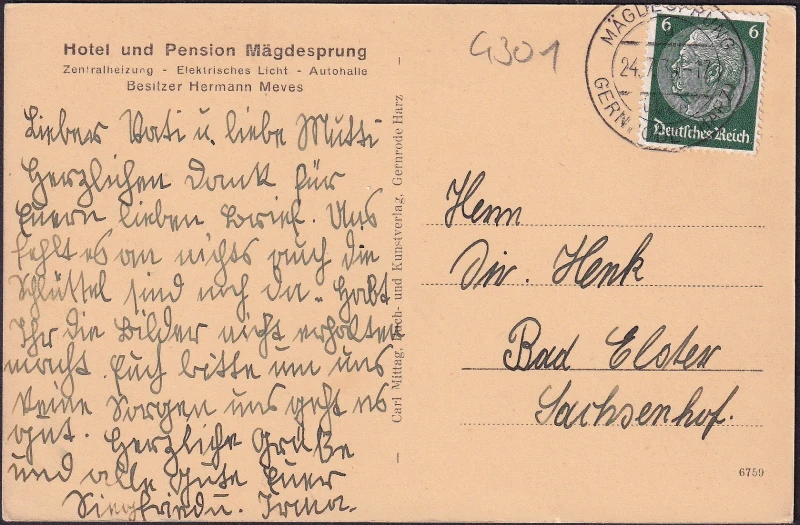 Hotel und Pension Mägdesprung
Zentralheizung - Elektrisches Licht - Autohalle
Besitzer Hermann Meves
Lieber Vati u. liebe Mutti
Herzlichen Dank für
Euern lieben Brief. Uns
fehlt es an nichts auch die
Schlüssel sind noch da. Habt
Ihr die Bilder nicht erhalten
macht Euch bitte um uns
keine Sorgen uns geht es
gut. Herzliche Grüße
und alle Gute Euer
Siegfried u. Irma.
Carl Mittag, Buch- und Kunstverlag, Gernrode Harz
G301
MÄGDESPRUNG
24.7.
GERNRODE (HARZ)
6 6
Deutsches Reich
Herrn
Dir. Henk
Bad Elster
Sachsenhof.
6759